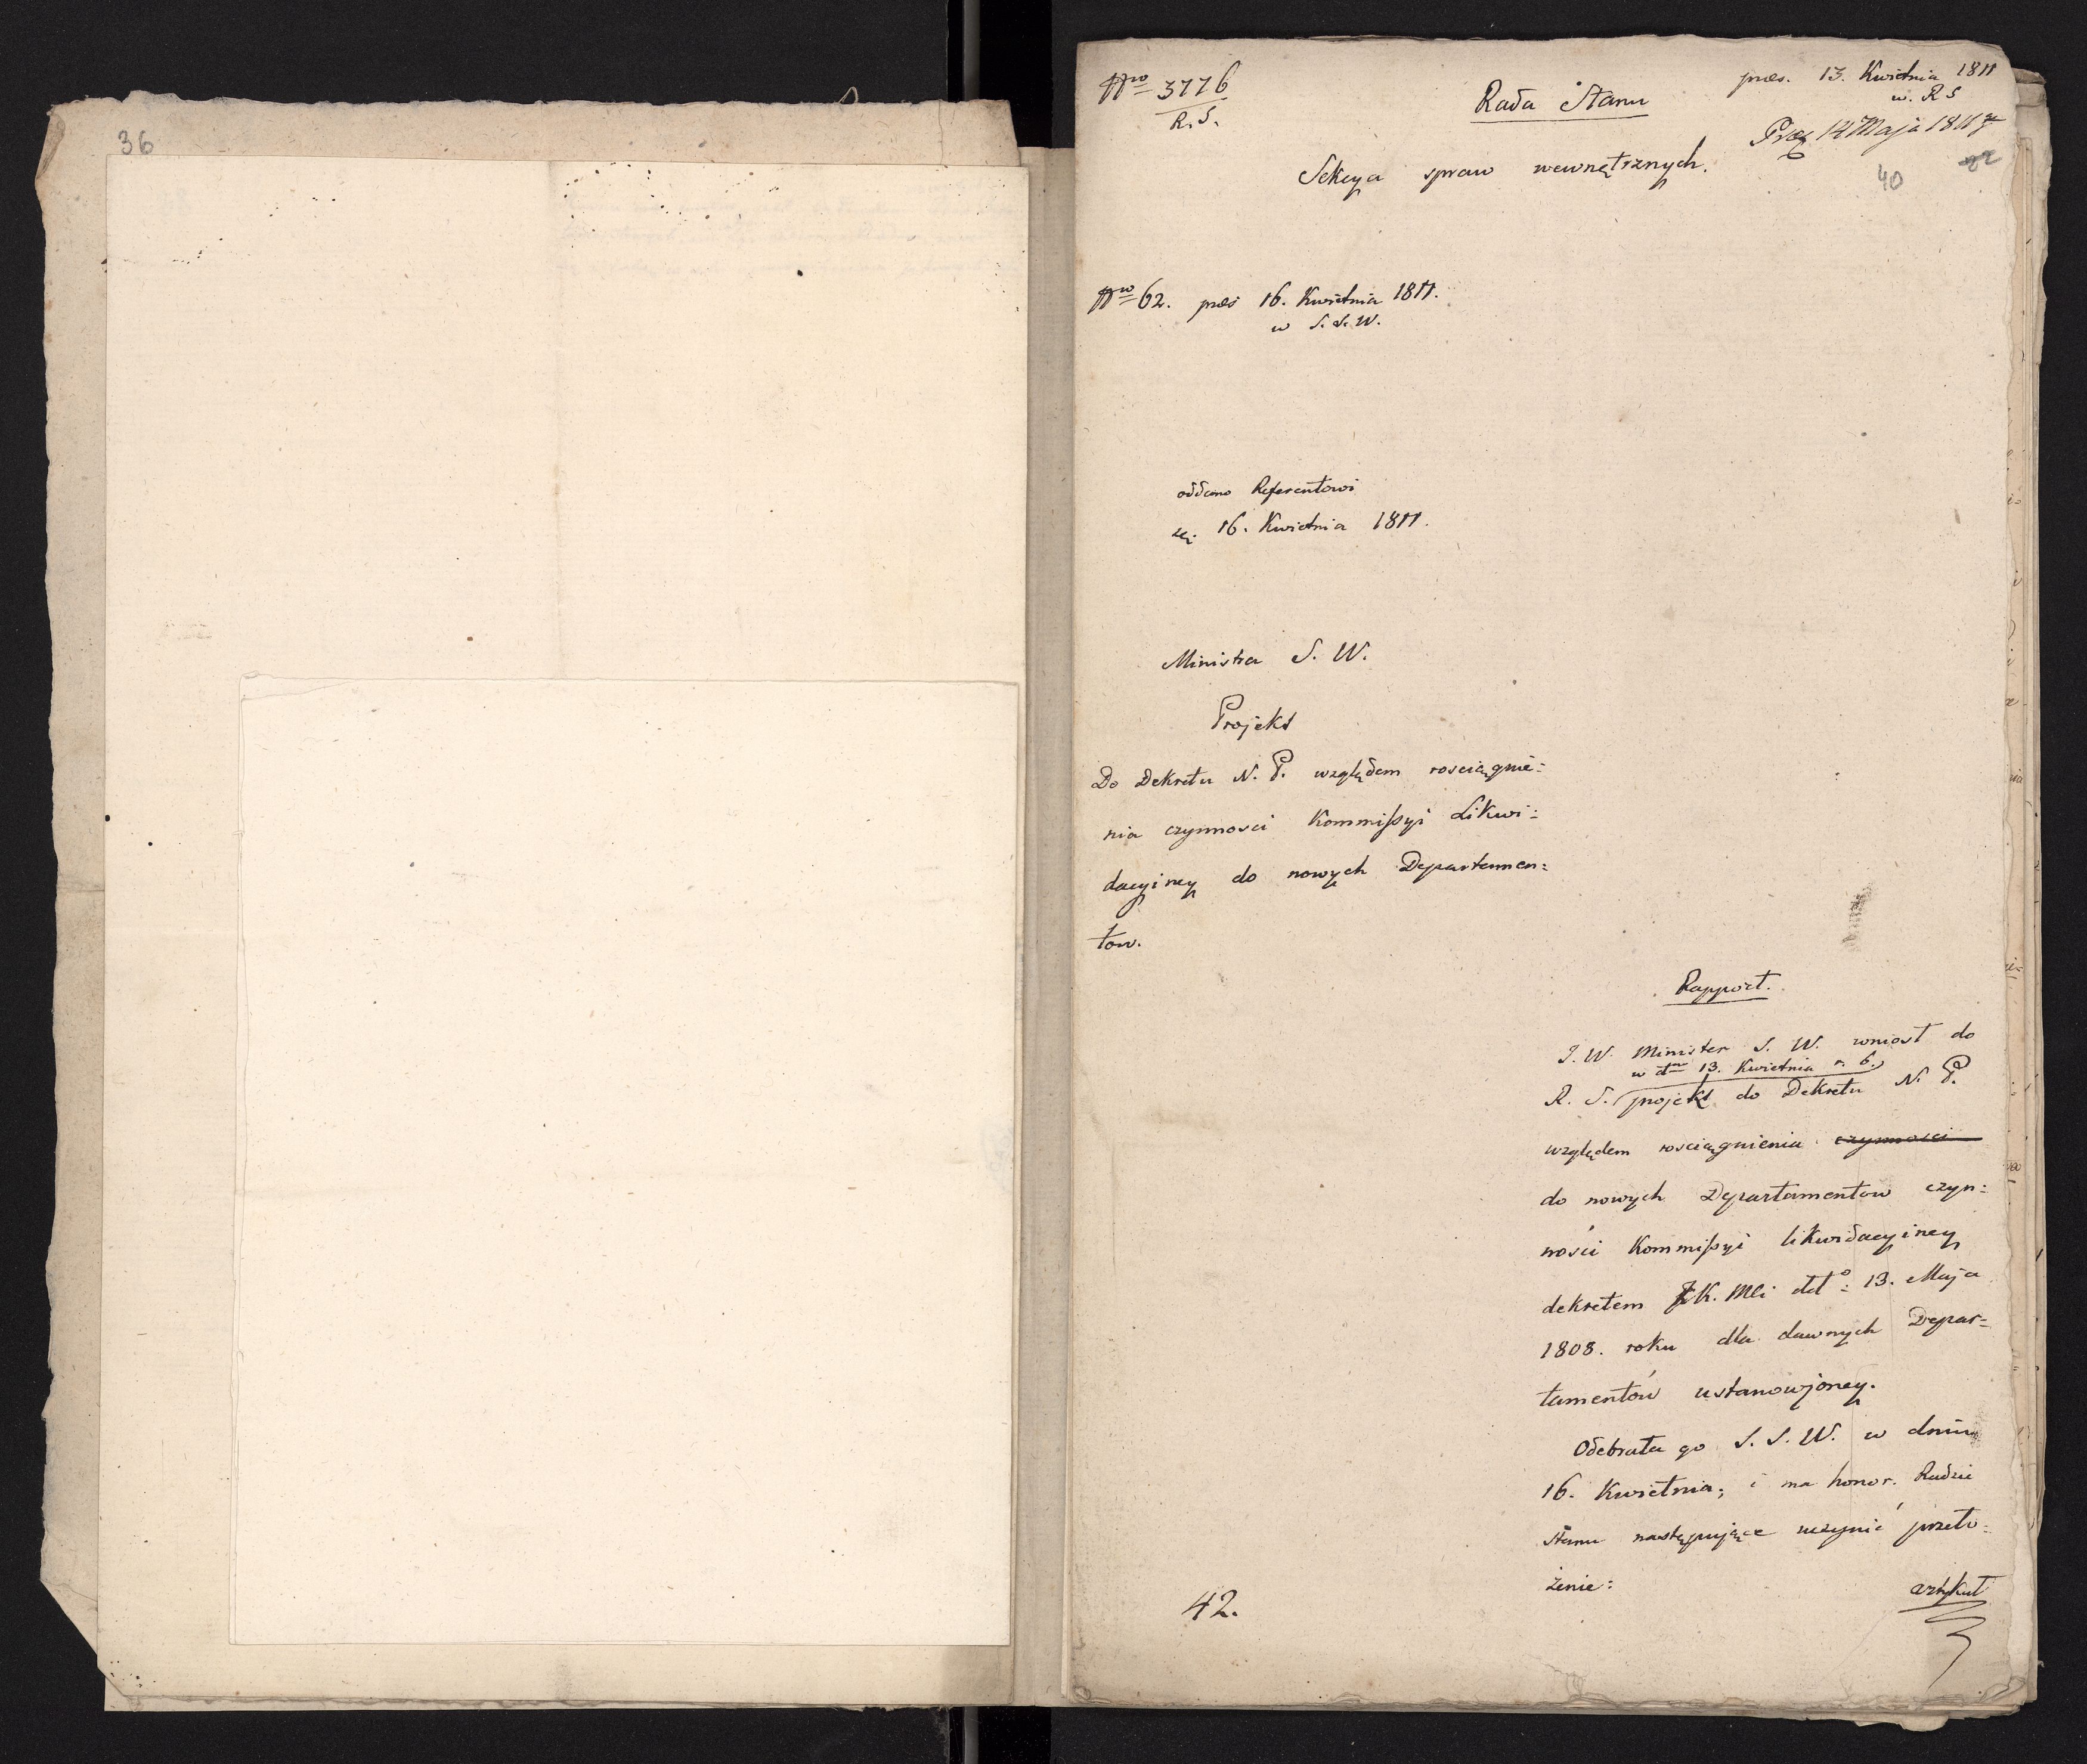 36
Nro 3776
R. S.
Rada Stanu
præs. 13. Kwietnia 1811
w. R S
Præs 14 Maja 1811
40
Sekcya spraw wewnętrznych.
Nro 62. præs 16. Kwietnia 1811.
w S. S. W.
oddano Referentowi
16. Kwietnia 1811.
Ministra S. W.
Projekt
Do Dekretu N. P. względem rosciągnie:
nia czynnosci Kommissyi Likwi:
dacyiney do nowych Departamen:
tow.
Rapport.
J. W. Minister S. W. wniosł do
w dn 13. Kwietnia r. b.
R. S. projekt do Dekretu N. P.
względem rosciągnienia czynnosci
do nowych Departamentow czyn:
ności Kommissyi likwidacyiney
dekretem K. Mci dto: 13. Maja
1808. roku dla dawnych Depar=
tamentów ustanowioney.
Odebrała go S. S. W. w dniu
16. Kwietnia; i ma honor. Radzie
Stanu następujące uczynić przeło:
żenie:
artykuł
42.